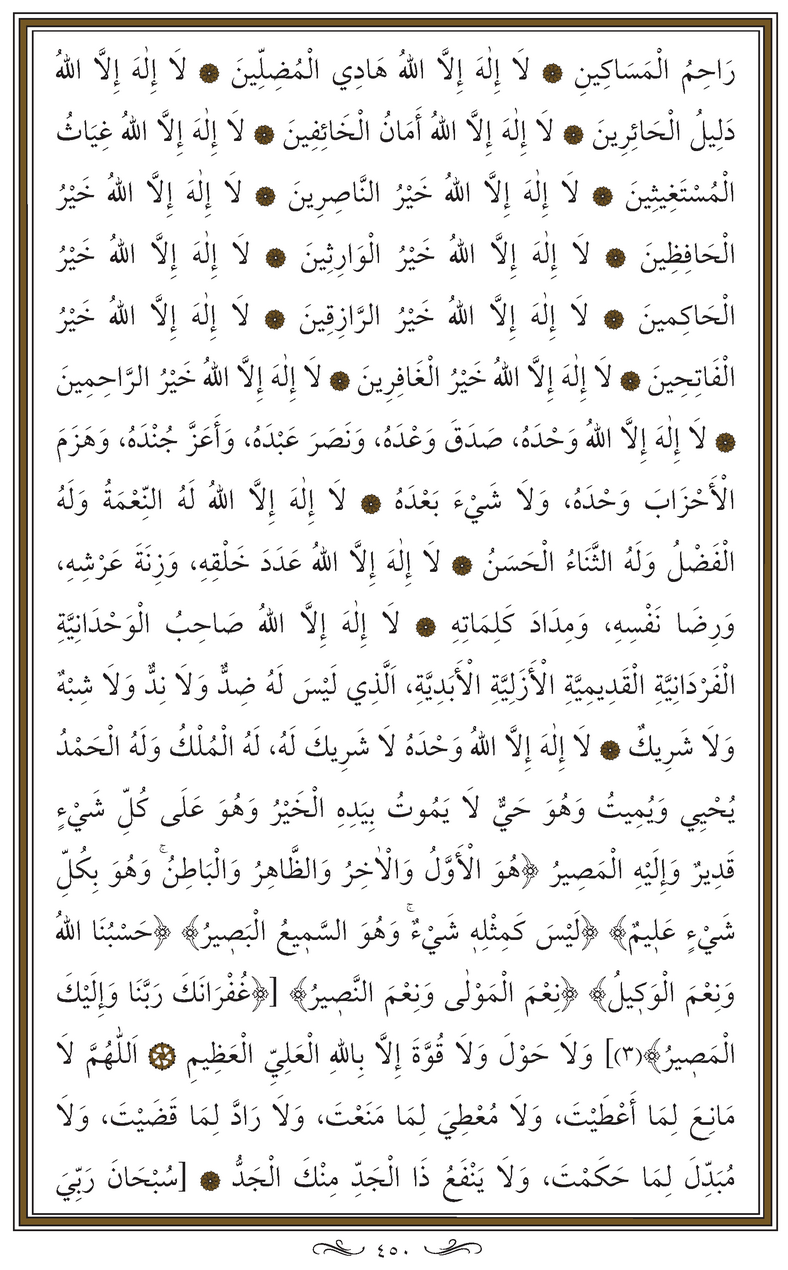 رَاحِمُ الْمَسَاكِينِ ۞ لَا إِلٰهَ إِلَّا اللهُ هَادِي الْمُضِلِّينَ ۞ لَا إِلٰهَ إِلَّا اللهُ
دَلِيلُ الْحَائِرِينَ ۞ لَا إِلٰهَ إِلَّا اللهُ أَمَانُ الْخَائِفِينَ ۞ لَا إِلٰهَ إِلَّا اللهُ غِيَاثُ
الْمُسْتَغِيثِينَ ۞ لَا إِلٰهَ إِلَّا اللهُ خَيْرُ النَّاصِرِينَ ۞ لَا إِلٰهَ إِلَّا اللهُ خَيْرُ
الْحَافِظِينَ ۞ لَا إِلٰهَ إِلَّا اللهُ خَيْرُ الْوَارِثِينَ ۞ لَا إِلٰهَ إِلَّا اللهُ خَيْرُ
الْحَاكِمِينَ ۞ لَا إِلٰهَ إِلَّا اللهُ خَيْرُ الرَّازِقِينَ ۞ لَا إِلٰهَ إِلَّا اللهُ خَيْرُ
الْفَاتِحِينَ ۞ لَا إِلٰهَ إِلَّا اللهُ خَيْرُ الْغَافِرِينَ ۞ لَا إِلٰهَ إِلَّا اللهُ خَيْرُ الرَّاحِمِينَ
۞ لَا إِلٰهَ إِلَّا اللهُ وَحْدَهُ، صَدَقَ وَعْدَهُ، وَنَصَرَ عَبْدَهُ، وَأَعَزَّ جُنْدَهُ، وَهَزَمَ
الْأَحْزَابَ وَحْدَهُ، وَلَا شَيْءَ بَعْدَهُ ۞ لَا إِلٰهَ إِلَّا اللهُ لَهُ النِّعْمَةُ وَلَهُ
الْفَضْلُ وَلَهُ الثَّنَاءُ الْحَسَنُ ۞ لَا إِلٰهَ إِلَّا اللهُ عَدَدَ خَلْقِهِ، وَزِنَةَ عَرْشِهِ،
وَرِضَا نَفْسِهِ، وَمِدَادَ كَلِمَاتِهِ ۞ لَا إِلٰهَ إِلَّا اللهُ صَاحِبُ الْوَحْدَانِيَّةِ
الْفَرْدَانِيَّةِ الْقَدِيمِيَّةِ الْأَزَلِيَّةِ الْأَبَدِيَّةِ، اَلَّذِي لَيْسَ لَهُ ضِدٌّ وَلَا نِدٌّ وَلَا شِبْهٌ
وَلَا شَرِيكٌ ۞ لَا إِلٰهَ إِلَّا اللهُ وَحْدَهُ لَا شَرِيكَ لَهُ، لَهُ الْمُلْكُ وَلَهُ الْحَمْدُ
يُحْيِي وَيُمِيتُ وَهُوَ حَيٌّ لَا يَمُوتُ بِيَدِهِ الْخَيْرُ وَهُوَ عَلَى كُلِّ شَيْءٍ
قَدِيرٌ وَإِلَيْهِ الْمَصِيرُ ﴿هُوَ الْأَوَّلُ وَالْاٰخِرُ وَالظَّاهِرُ وَالْبَاطِنُۚ وَهُوَ بِكُلِّ
شَيْءٍ عَلِيمٌ﴾ ﴿لَيْسَ كَمِثْلِهِ شَيْءٌۚ وَهُوَ السَّمِيعُ الْبَصِيرُ﴾ ﴿حَسْبُنَا اللهُ
وَنِعْمَ الْوَكِيلُ﴾ ﴿نِعْمَ الْمَوْلٰى وَنِعْمَ النَّصِيرُ﴾ [﴿غُفْرَانَكَ رَبَّنَا وَإِلَيْكَ
الْمَصِيرُ﴾(٣)] وَلَا حَوْلَ وَلَا قُوَّةَ إِلَّا بِاللهِ الْعَلِيِّ الْعَظِيمِ ۞ اَللّٰهُمَّ لَا
مَانِعَ لِمَا أَعْطَيْتَ، وَلَا مُعْطِيَ لِمَا مَنَعْتَ، وَلَا رَادَّ لِمَا قَضَيْتَ، وَلَا
مُبَدِّلَ لِمَا حَكَمْتَ، وَلَا يَنْفَعُ ذَا الْجَدِّ مِنْكَ الْجَدُّ ۞ [سُبْحَانَ رَبِّيَ
٤٥٠